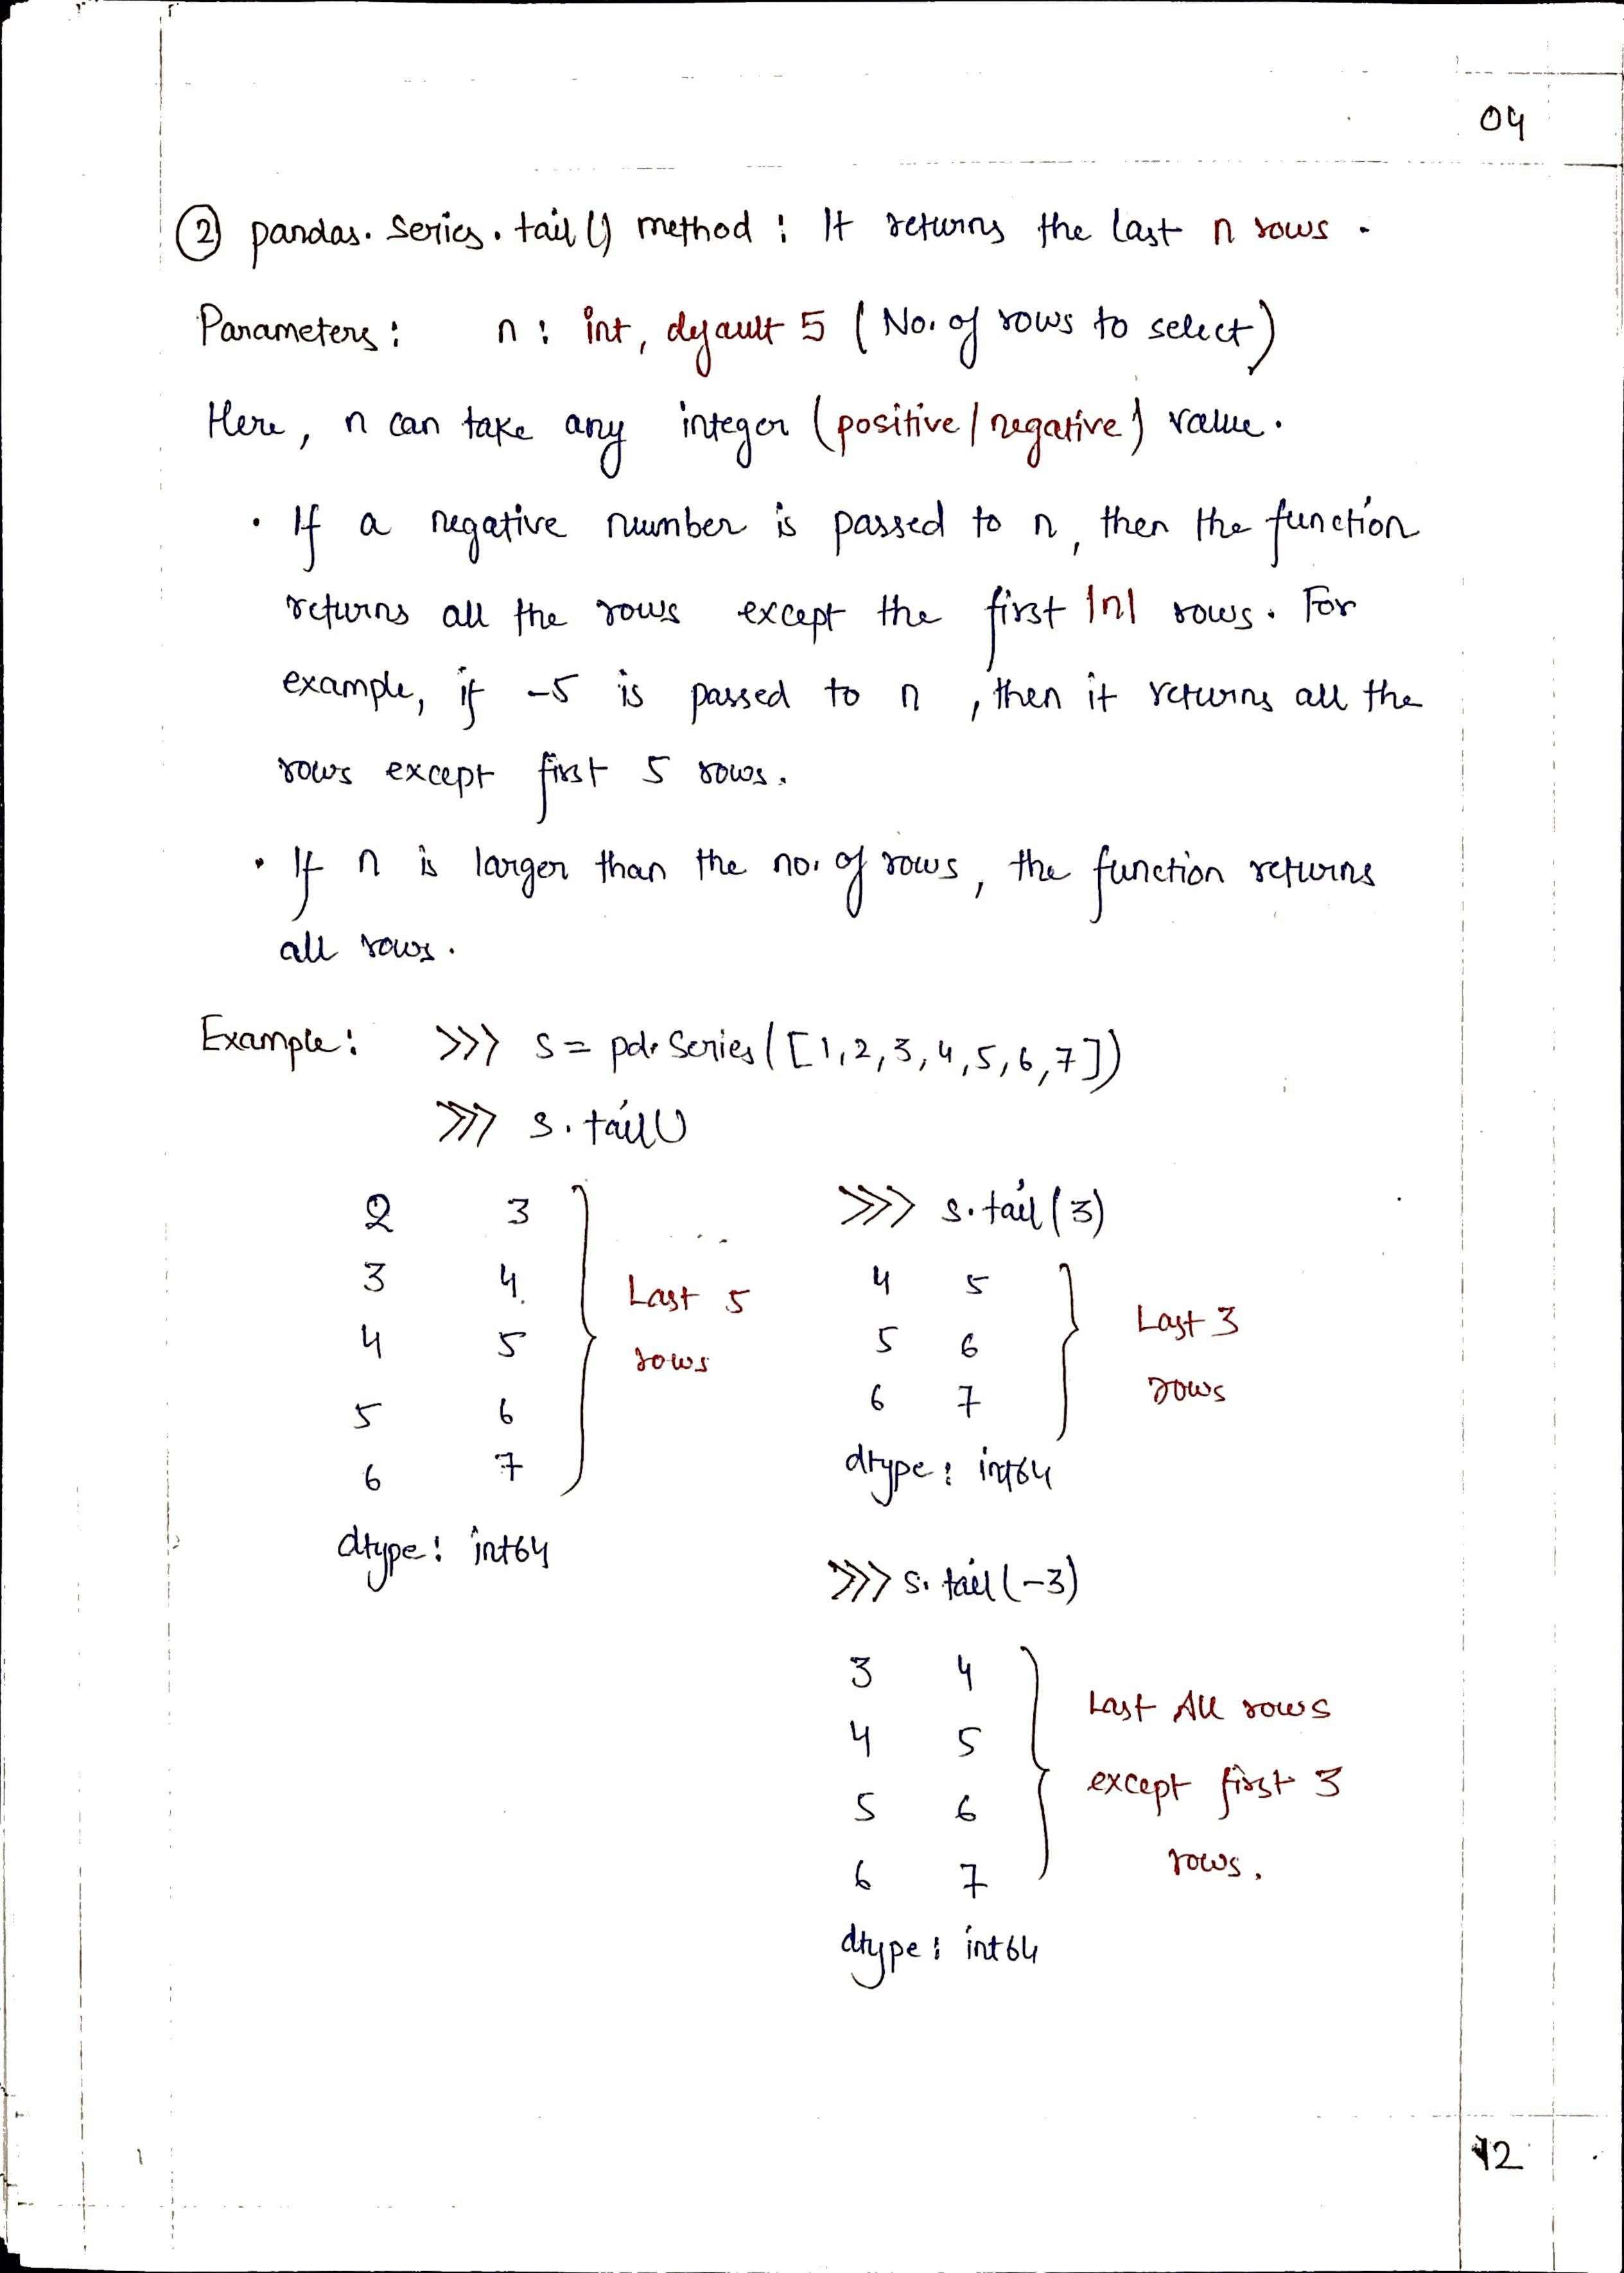 04
② pandas. Series. tail() method : It returns the last n rows .
Parameters : n : int, default 5 ( No. of rows to select)
Here, n can take any integer (positive/negative) value.
· If a negative number is passed to n, then the function
returns all the rows except the first |n| rows. For
example, if -5 is passed to n , then it returns all the
rows except first 5 rows.
· If n is larger than the no. of rows, the function returns
all rows.
Example: >>> s = pd. Series([1,2,3,4,5,6,7])
>>> s. tail()
2 3
3 4
4 5
5 6
6 7
Last 5
rows
dtype: int64
>>> s. tail(3)
4 5
5 6
6 7
Last 3
rows
dtype: int64
>>> s. tail(-3)
3 4
4 5
5 6
6 7
Last All rows
except first 3
rows.
dtype: int64
12